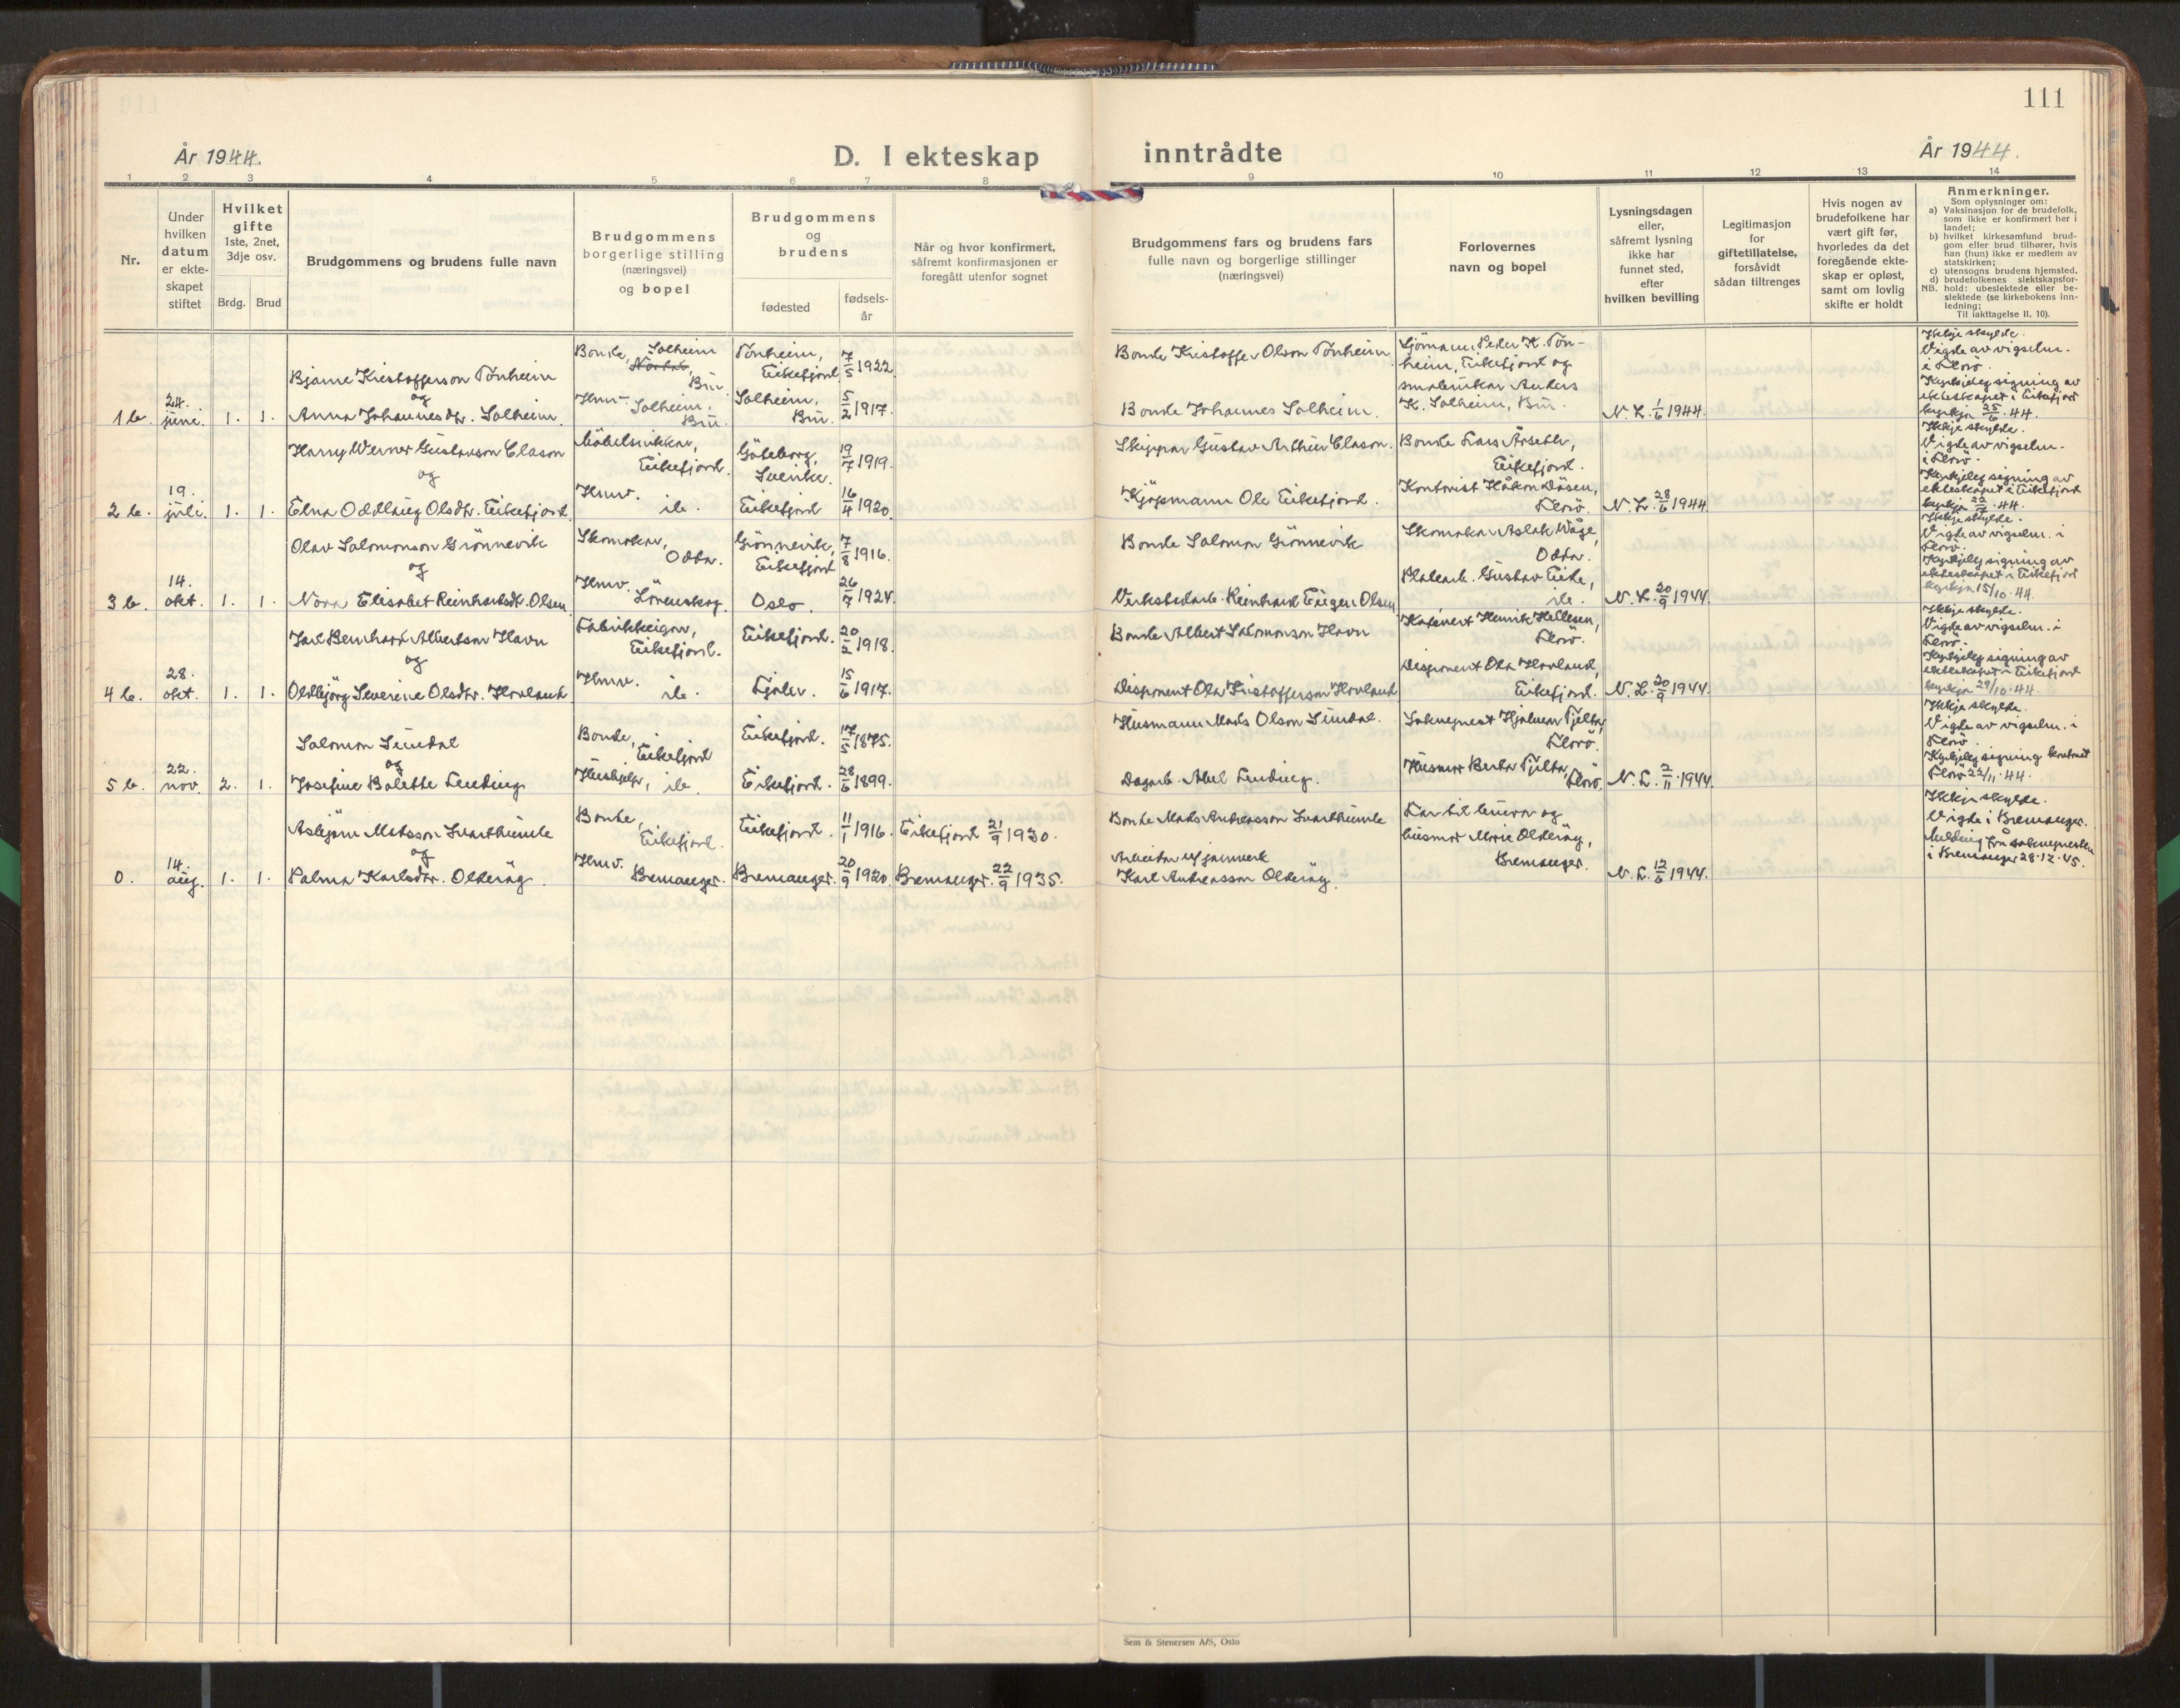 111
År 1944.
D. I ekteskap inntrådte
År 1944.
1 2 3 4 5 6 7 8 9 10 11 12 13 14
Nr.
Under hvilken datum er ekte-skapet stiftet
Hvilket gifte 1ste, 2net, 3dje osv.
Brdg. Brud
Brudgommens og brudens fulle navn
Brudgommens borgerlige stilling (næringsvei) og bopel
Brudgommens og brudens
fødested
fødsels-år
Når og hvor konfirmert, såfremt konfirmasjonen er foregått utenfor sognet
Brudgommens fars og brudens fars fulle navn og borgerlige stillinger (næringsvei)
Forlovernes navn og bopel
Lysningsdagen eller, såfremt lysning ikke har funnet sted, efter hvilken bevilling
Legitimasjon for giftetillatelse, forsåvidt sådan tiltrenges
Hvis nogen av brudefolkene har vært gift før, hvorledes da det foregående ekte-skap er opløst, samt om lovlig skifte er holdt
Anmerkninger.
Som oplysninger om:
a) Vaksinasjon for de brudefolk, som ikke er konfirmert her i landet;
b) hvilket kirkesamfund brud-gom eller brud tilhører, hvis han (hun) ikke er medlem av statskirken;
c) utensogns brudens hjemsted.
d) brudefolkenes slektskapsfor-hold: ubeslektede eller be-slektede (se kirkebokens inn-ledning;
NB. Til iakttagelse II. 10).
Bjarne Kristofferson Tonheim
og
Anna Johannesdtr. Solheim.
1 b. 24. juni. 1. 1.
Bonde, Solheim
Nordal, Bru
Hmv. Solheim, Bru.
Tonheim, Eikefjord 7/5 1922.
Solheim, Bru. 5/2 1917.
Bonde Kristoffer Olson Tonheim
Bonde Johannes Solheim.
Sjömann Peder K. Ton-
heim, Eikefjord og
Anders
K. Solheim, Bru.
N. L. 1/6 1944.
Ikkje skylde.
Vigde av vigselm.
i Florö.
Kyrkjeleg signing av
ekteskapet i Eikefjord
kyrkja 25/6. 44.
Harry Werner Gustavson Clason
og
Elna Oddlaug Olsdtr. Eikefjord.
2 b. 19. juli. 1. 1.
Möbelsnikkar,
Eikefjord.
Hmv. do.
Göteborg, Sverike. 19/7 1919.
Eikefjord 16/4 1920.
Skippar Gustav Arthur Clason.
Kjöpmann Ole Eikefjord.
Bonde Lars Årseth,
Eikefjord.
Kontorist Håkon Dåsen,
Florö.
N. L. 28/6 1944
Ikkje skylde.
Vigde av vigselm.
i Florö.
Kyrkjeleg signing av
ekteskapet i Eikefjord
kyrkja 22/7. 44.
Olav Salomonson Grönnevik
og
Nora Elisabet Reinhardsdtr. Olsen
3 b. 14. okt. 1. 1.
Skomakar,
Odda.
Hmv. Lörenskog.
Grönnevik, Eikefjord 7/8 1916.
Oslo. 26/7 1924.
Bonde Salomon Grönnevik
Verkstedarb. Reinhard Eugen Olsen
Skomakar Aslak Våge,
Odda.
Gustav Eide,
do.
N. L. 20/9 1944.
Ikkje skylde.
Vigde av vigselm. i
Florö.
Kyrkjeleg signing av
ekteskapet i Eikefjord
kyrkja 15/10. 44.
Bernhard Albertson Havn
og
Oddbjörg Severine Olsdtr. Hovland
4 b. 28. okt. 1. 1.
Fabrikkeigar,
Eikefjord.
Hmv. do.
Eikefjord. 20/2 1918.
Fjaler. 15/6 1917.
Bonde Albert Salomonson Havn
Disponent Ola Kristofferson Hovland
Henrik Hellesen,
Florö.
Disponent Ola Hovland,
Eikefjord.
N. L. 20/9 1944.
Ikkje skylde.
Vigde av vigselm. i
Florö.
Kyrkjeleg signing av
ekteskapet i Eikefjord
kyrkja 29/10. 44.
Salomon Sundal
og
Josefine Balette Lending
5 b. 22. nov. 2. 1.
Bonde,
Eikefjord
Hushjelp, do.
Eikefjord. 17/5 1875.
Eikefjord. 28/6 1899.
Husmann Mads Olson Sundal.
Dagarb. Abel Lending.
Sokneprest Hjalmar Tjelta,
Florö.
Husmor Berta Tjelta, Florö.
N. L. 2/11 1944.
Ikkje skylde.
Vigde av vigselm. i
Florö.
Kyrkjeleg signing
Florö 22/11. 44.
Asbjörn Madsson Svarthumle
og
Palma Karlsdtr. Olderåg.
0. 14. aug. 1. 1.
Bonde,
Eikefjord.
Hmv. Bremanger.
Eikefjord. 11/1 1916. Eikefjord 21/9 1930.
Bremanger. 20/9 1920. Bremanger. 22/9 1935.
Bonde Mads Andreasson Svarthumle
Arbeidar
Karl Andreasson Olderåg.
Far til brura og
husmor Marie Olderåg,
Bremanger.
N. L. 12/6 1944.
Ikkje skylde.
Vigde i Bremanger.
Melding frå soknepresten
i Bremanger 28.12.45.
Sem & Stenersen A/S, Oslo